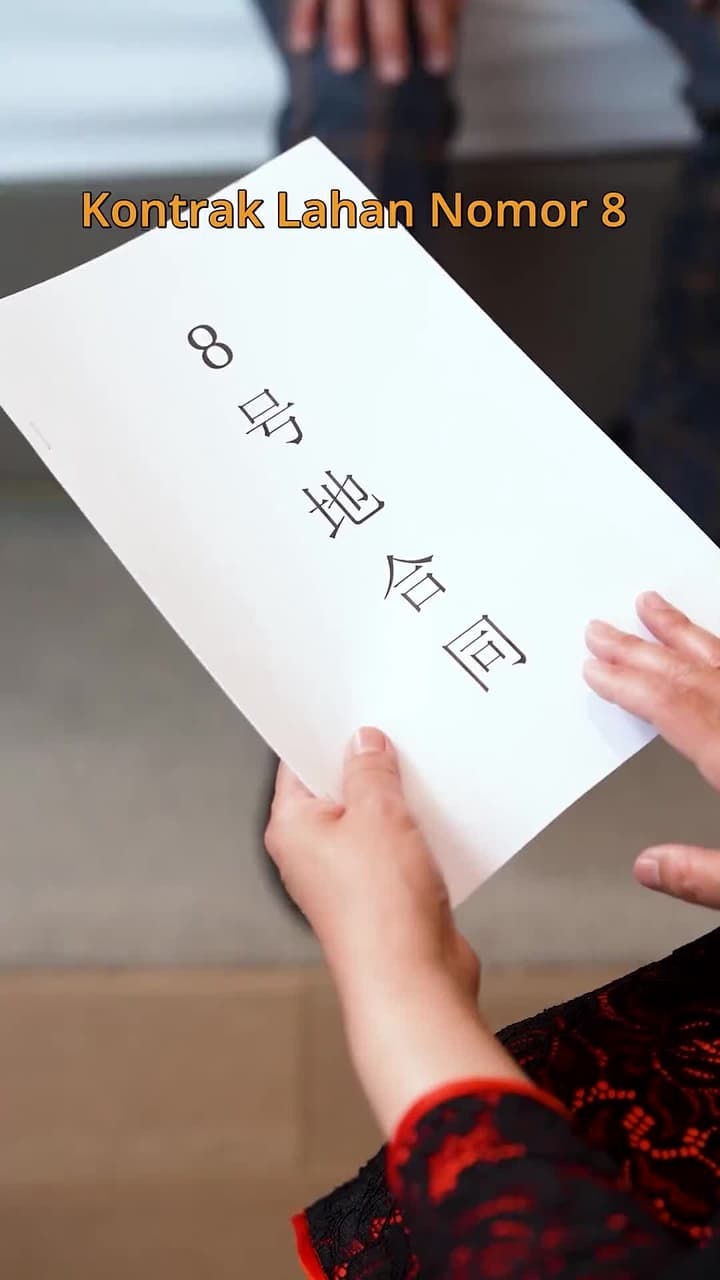 Kontrak Lahan Nomor 8
8号地合同